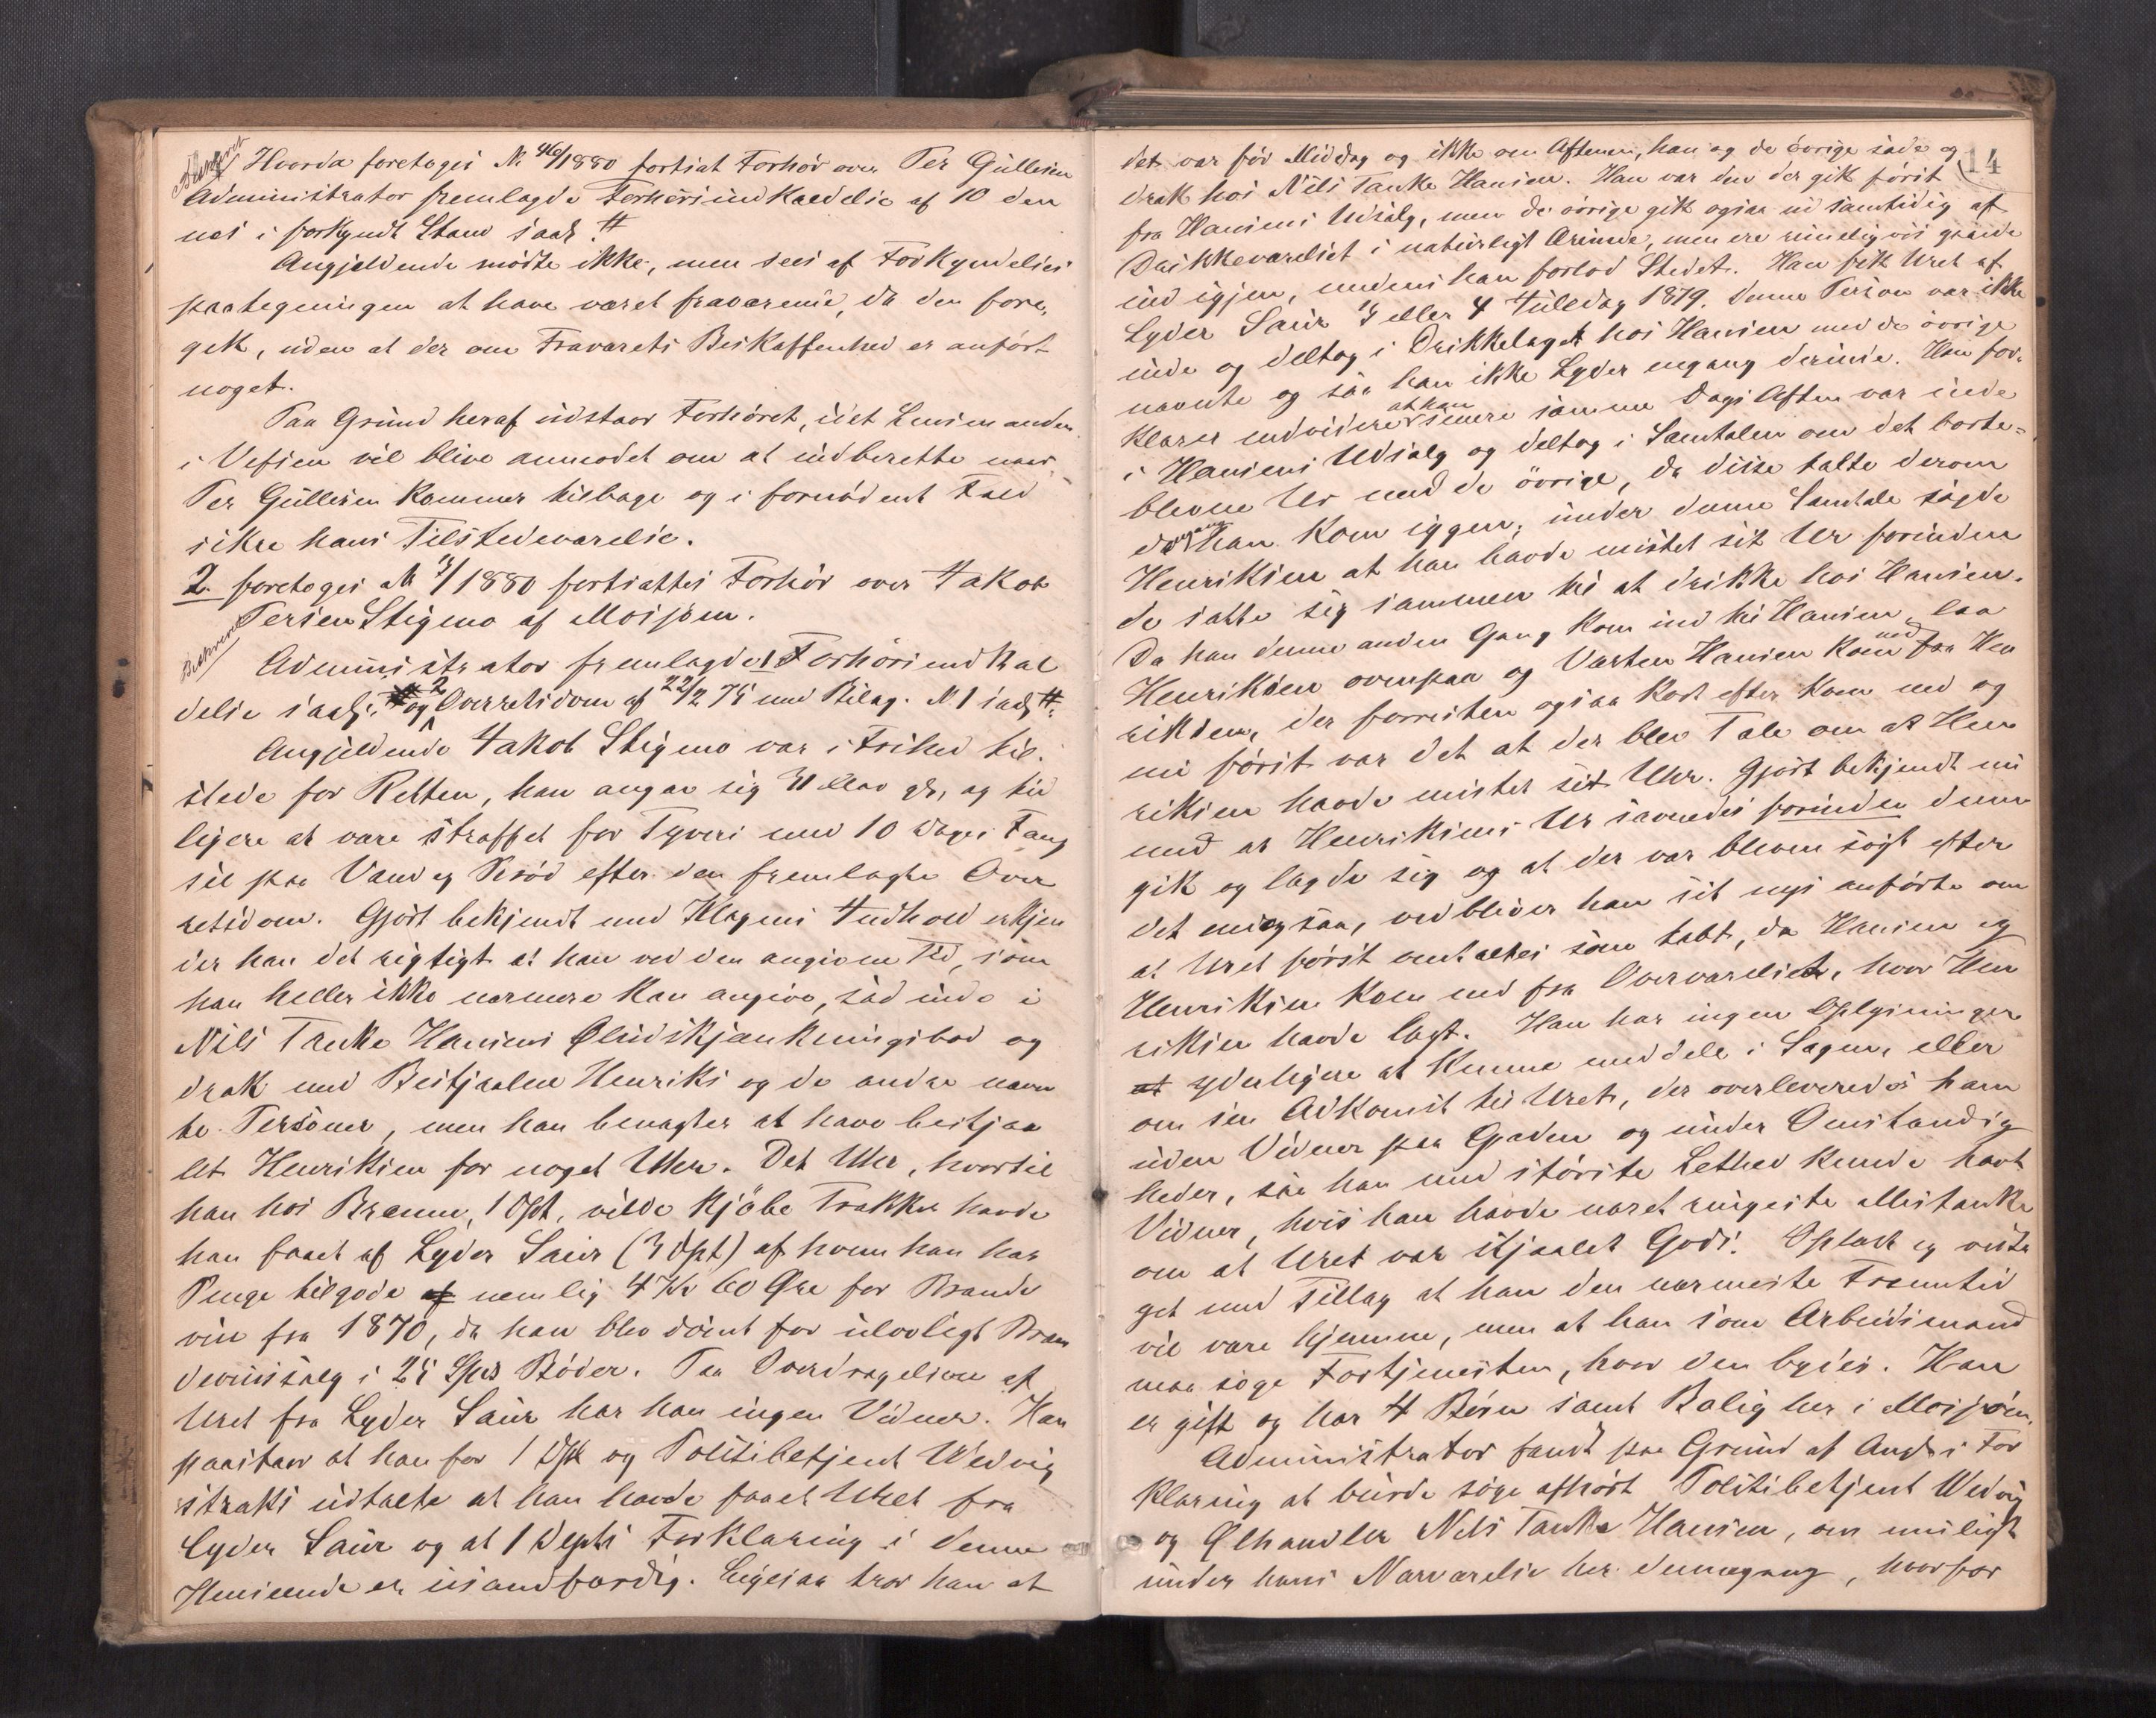 Beskrevet
Hvorda foretoges N. 46/1880 fortsat Forhør over Per Gullesen
Administrator fremlagde Forhørsindkaldelse af 10 den
nes i forkyndt Stand saal. #
Angjeldende mødte ikke, men sees af Forkyndelses
paategningen at have været fraværende, da den fore,
gik, uden at der om Fraværets Beskaffenhed er anført
noget.
Paa Grund heraf udstaar Forhøret, idet Lensmanden
i Vefsen vil blive anmodet om at indberette naar
Per Gullesen kommer tilbage og i fornødent Fald
sikre hans Tilstedeværelse.
2. foretoges N /1880 fortsattes Forhør over Jakob
Persen Stigmo af Mosjøen.
Beskrevet
Administrator fremlagde 1 Forhørsindkal
delse saal. og 2 Overretsdom af 22/2 75 med Bilag. N. 1 saal #.
Angjeldende Jakob Stigmo var i Frihed til.
stede for Retten, han angav sig Aar gl., og tid
ligere at være straffet for Tyveri med 10 Dages Fæng
sel paa Vand og Brød efter den fremlagte Over
retsdom. Gjort bekjendt med Klagens Indhold erkjen
der han det rigtigt at han ved den angivne Tid, som
han heller ikke nærmere kan angive, sad inde i
Nils Tanke Hansens Øludskjænkningsbod og
drak med Bestjaalne Henriks og de andre nævn
te Personer, men han benægter at have bestjaa
let Henriksen for noget Uhr. Det Uhr, hvortil
han hos Brænne, 1 Dpt, vilde kjøbe Trækker havde
han faaet af Lyder Saur (3 Dpt) af hvem han har
Penge tilgode af nemlig 4 Kr 60 Øre for Brænde
vin fra 1870, da han blev dømt for ulovligt Bræn
devinssalg i 25 Spds Bøder. Paa Overdragelsen af
Uret fra Lyder Saur har han ingen Vidner. Han
paastaar at han for 1 Dpt og Politibetjent Wedvig
straks udtalte at han havde faaet Uret fra
Lyder Saur og at 1 Depts Forklaring i denne
Henseende er usandfærdig. Ligesaa tror han at
14
det var før Middag og ikke om Aftenen, han og de øvrige sade og
drak hos Nils Tanke Hansen. Han var den der gik først
fra Hansens Udsalg, men de øvrige gik ogsaa ud samtidig af
Drikkeværelset i naturligt Ærinde, men ere rimeligvis gaaede
ind igjen, medens han forlod Stedet. Han fik Uret af
Lyder Saur 3 eller 4 Juledag 1879. Denne Person var ikke
inde og deltog i Drikkelaget hos Hansen med de øvrige
nævnte og saa han ikke Lyder engang derinde. Han for,
klarer endvidere at han senere samme Dags Aften var inde
i Hansens Udsalg og deltog i Samtalen om det borte=
blevne Ur med de øvrige, da disse talte derom
da han kom iggen; under denne Samtale sagde
Henriksen at han havde mistet sit Ur forinden
de satte sig sammen til at drikke hos Hansen.
Da han denne anden Gang kom ind til Hansen, laa
Henriksen ovenpaa og Værten Hansen kom ned fra Hen
riksen, der forresten ogsaa kort efter kom ned og
nu først var det at der blev Tale om at Hen
riksen havde mistet sit Uhr. Gjort bekjendt nu
med at Henriksens Ur savnedes forinden denne
gik og lagde sig og at der var bleven søgt efter
det ogsaa, vedbliver han sit nys anførte om
at Uret først omtaltes som tabt, da Hansen og
Henriksen kom ned fra Overværelset, hvor Hen
riksen havde lagt. Han har ingen Oplysninger
at yderligere at kunne meddele i Sagen, eller
om sin Adkomst til Uret, der overleveredes ham
uden Vidner paa Gaden og under Omstændig
heder, saa han med største Lethed kunde havt
Vidner, hvis han havde næret ringeste Mistanke
om at Uret var stjaalet Gods. Oplæst og vedta
get med Tillæg at han den nærmeste Fremtid
vil være hjemme, men at han som Arbeidsmand
maa søge Fortjenesten, hvor den bydes. Han
er gift og har 4 Børn samt Bolig her i Mosjøen.
Administrator fandt paa Grund af Angds For
klaring at burde søge afhørt Politibetjent Wedvig
og Ølhandler Nils Tanke Hansen, om muligt
under hans Nærværelse her dennegang, hvorfor